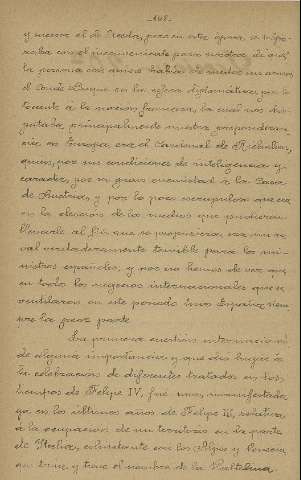 -108-
y menos el de Italia, pero en esta época se trope-
zaba con el inconveniente para nosotros de que
la persona con quien había de medir sus armas
el Conde Duque en la esfera diplomática, por lo
tocante a la nación francesa, la cual nos dis-
putaba principalmente nuestra preponderan-
cia en Europa era el Cardenal de Richelieu,
quien, por sus condiciones de inteligencia y
carácter, por su gran enemistad a la Casa
de Austria, y por lo poco escrupuloso que era
en la elección de los medios que pudieran
llevarle al fin que se propusiera, era un ri-
val verdaderamente temible para los mi-
nistros españoles, y así hemos de ver que
en todos los negocios internacionales que se
ventilaron en este periodo tuvo España siem-
pre la peor parte.
La primera cuestión internacional
de alguna importancia y que dio lugar a
la celebración de diferentes tratados en los
tiempos de Felipe IV, fué una, manifestada
ya en los últimos años de Felipe III, relativa
a la ocupación de un territorio en la parte
de Italia, colindante con los Alpes y
que tuvo y tiene el nombre de la Valtelina